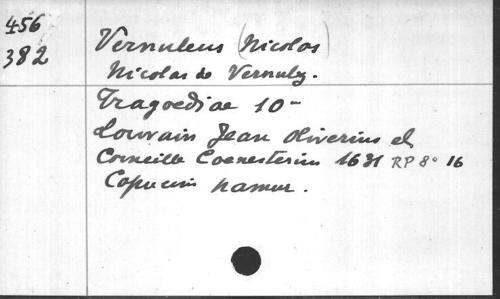 456
382
Vernuleus (Nicolas)
Nicolas de Vernulz.
Tragoediae 10 -
Louvain Jean Oliverius et
Corneille Coenesterius 1631 RP 8° 16
Capucins Namur.